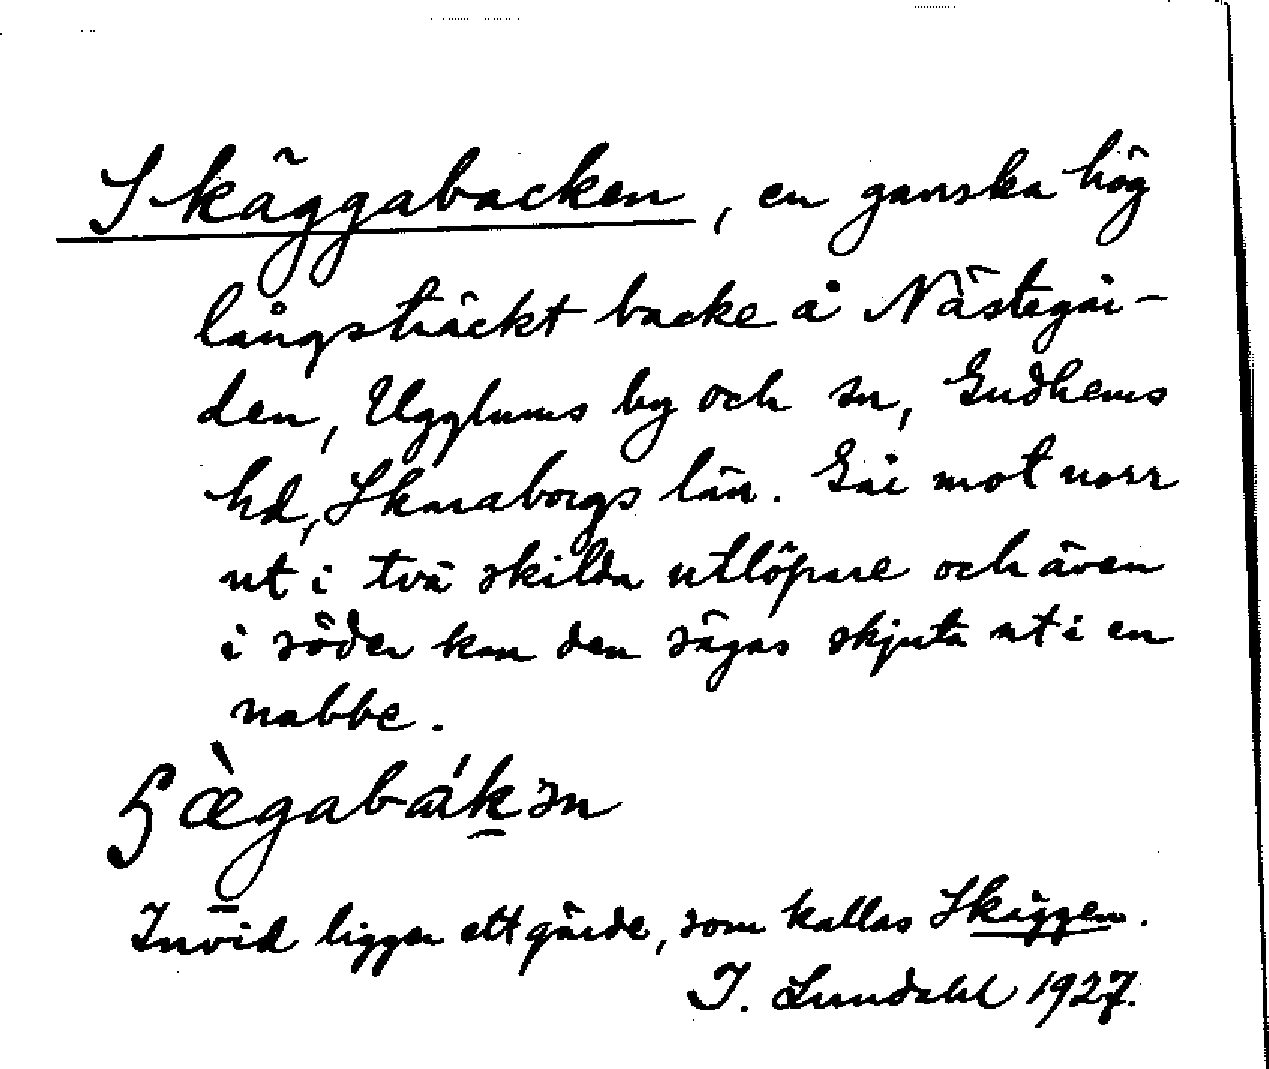 Skäggabacken, en ganska hög
långsträckt backe å Nästegår-
den, Ugglums by och sn, Gudhems
hd, Skaraborgs län. Går mot norr
ut i två skilda utlöpare och även
i söder kan den sägas skjuta ut i en
nabbe.
ʃæ̀gabák̲ən
Invid ligger ett gärde, som kallas Skäggen.
I. Lundahl 1927.